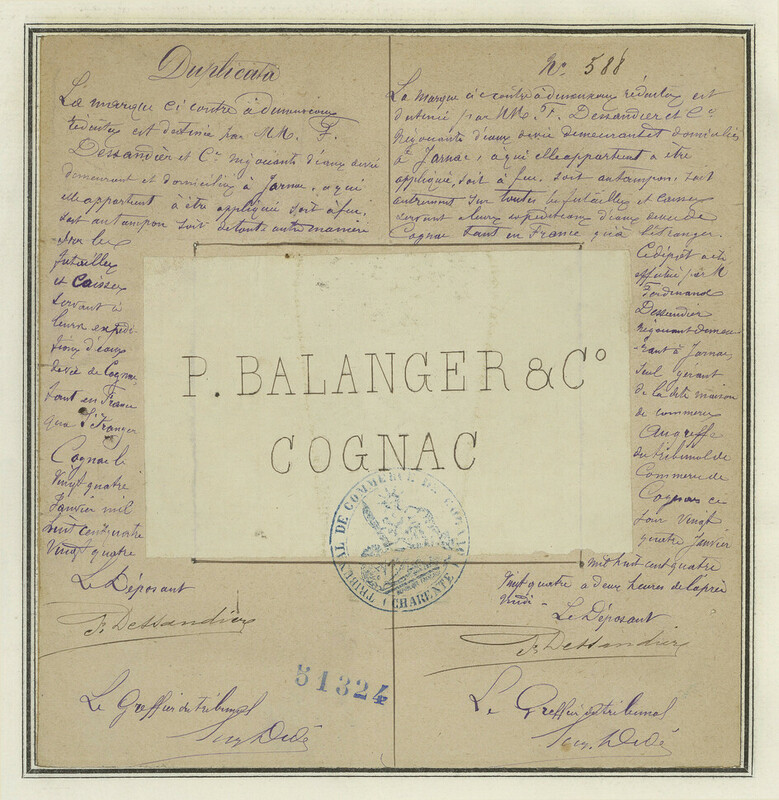 Duplicata
La marque ci contre à dimensions
réduites est destinée par MM. F.
Dessandier et Cie négociants d'eaux de vie
demeurant et domiciliés à Jarnac, à qui
elle appartient à être appliquée soit à feu,
soit au tampon soit de toute autre manière
sur les
futailles
et Caisses
servant à
leurs expédi-
tions d'eaux
de vie de Cognac
tant en France
qu'à l'Etranger
Cognac le
Vingt quatre
Janvier mil
huit cent quatre
Vingt quatre
Le Déposant
F. Dessandier
Le Greffier du tribunal
No. 588
La marque ci contre à dimensions réduites est
destinée par MM. F. Dessandier et Cie
Négociants d'eaux de vie demeurant et domiciliés
à Jarnac, à qui elle appartient a être
appliquée, soit à feu, soit au tampon, soit
autrement sur toutes les futailles et caisses
servant a leurs expéditions d'eaux de vie de
Cognac tant en France qu'à l'étranger.
Ce dépôt a été
effectué par M
Ferdinand
Dessandier
Négociant demeu-
-rant à Jarnac,
seul gérant
de la dite maison
de commerce
Au greffe
du tribunal de
Commerce de
Cognac ce
jour Vingt
quatre Janvier
mil huit cent quatre
Vingt quatre a deux heures de l'après
midi -
Le Déposant
F. Dessandier
Le Greffier du tribunal
P. BALANGER & Co
COGNAC
TRIBUNAL DE COMMERCE DE COGNAC
(CHARENTE)
51324